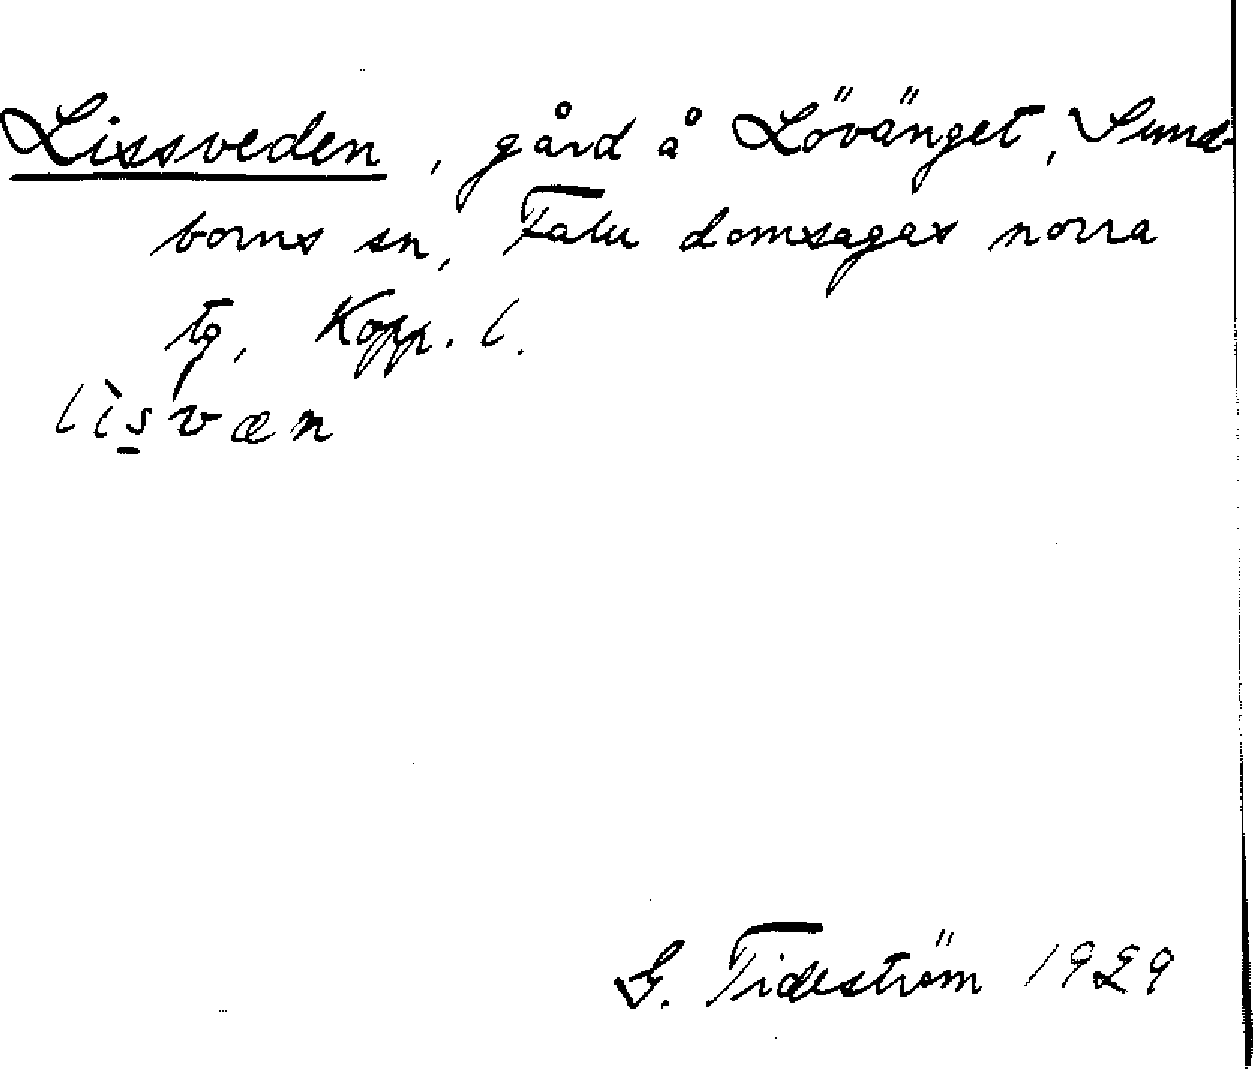 Lissveden, gård å Lövänget, Sund-
borns sn, Falu domsagas norra
tg, Kopp. l.
lìs̲væn
G. Tideström 1929